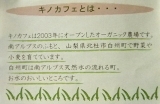 キノカフェとは・・・
キノカフェは2003年にオープンしたオーガニック農場です。
南アルプスのふもと、山梨県北杜市白州町で野菜や
小麦を育てています。
白州町は南アルプス天然水の流れる町。
お水のおいしいところです。